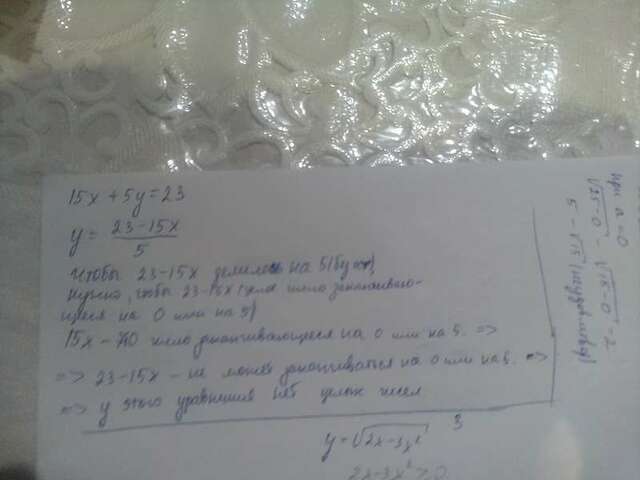 15x + 5y = 23
y = 23-15x / 5
чтобы 23-15x делилось на 5
нужно, чтобы 23-15x целое число заканчиваю-
щееся на 0 или на 5)
15x - это число заканчивающееся на 0 или на 5. =>
=> 23-15x - не может заканчиваться на 0 или на 5. =>
=> у этого уравнения нет целых чисел
y = √2x-3x²
3
2x-3x² > 0
при a=0
√25-0 - √15-0 = 2
5 - √15